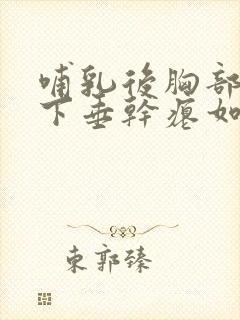 哺乳後胸部
下垂幹癟如
東郭臻